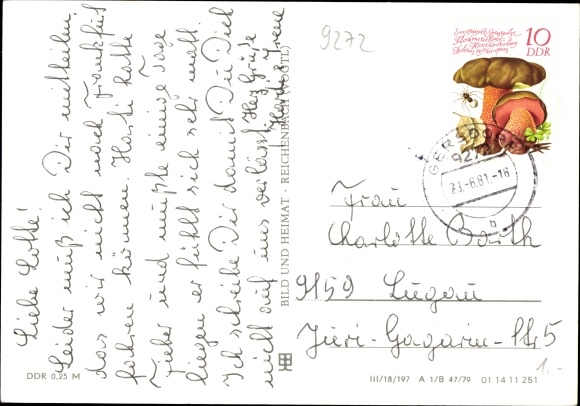 Liebe Lotte!
Leider muß ich Dir mitteilen,
das wir nicht nach Frankfurt
fahren können. Hardi hatte
Fieber und mußte einige Tage
liegen er fühlt sich sehr matt.
Ich schreibe Dir damit Du Dich
nicht auf uns verläßt, Herzl. Grüße
Hardi & Irene
BILD UND HEIMAT · REICHENBACH (VOGTL)
9272
10
DDR
GERSDORF
9272
23.-6.81.-18
b
Frau
Charlotte Barth
9159 Lugau
Juri-Gagarin-Str. 5
1.-
DDR 0,25 M
III/18/197 A 1/B 47/79 01 14 11 251